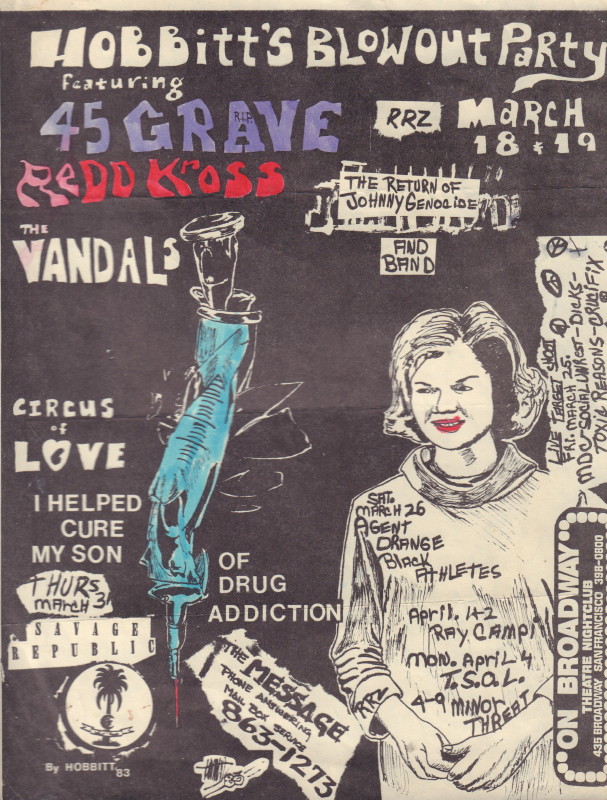 HOBBITT'S BLOWOUT PARTY
featuring
45 GRAVE
R.I.P.
REDD KROSS
THE
VANDALS
RRZ
MARCH
18 & 19
THE RETURN OF
JOHNNY GENOCIDE
AND
BAND
CIRCUS
of
LOVE
I HELPED
CURE
MY SON
OF
DRUG
ADDICTION
THURS
MARCH 31
SAVAGE
REPUBLIC
By HOBBITT '83
THE MESSAGE
PHONE ANSWERING
MAIL BOX SERVICE
863-1273
LIVE TARGET SHOOT
FRI. MARCH 25.
MDC-SOCIAL UNREST-DICKS-
TOXIC REASONS-CRUCIFIX
SAT.
MARCH 26
AGENT
ORANGE
Black
ATHLETES
April. 1+2
RAY CAMPI
MON. APRIL 4
T.S.O.L.
4-9 MINOR
THREAT
RRZ
ON BROADWAY
THEATRE NIGHTCLUB
435 BROADWAY SAN FRANCISCO 398-0800